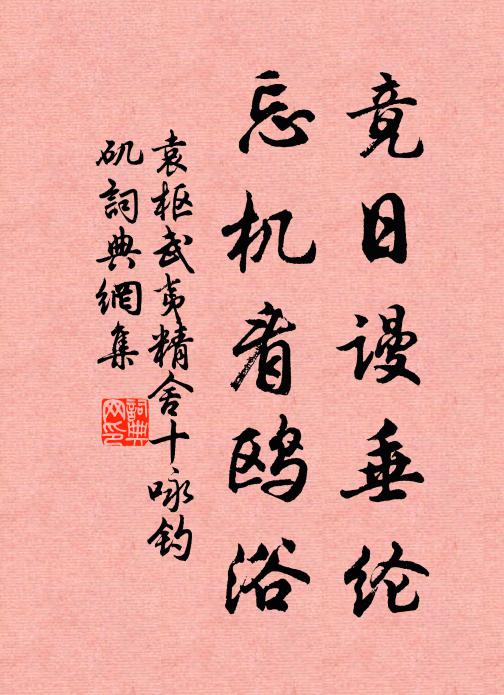 竟日谩垂纶
忘机看鸥浴
袁枢武夷精舍十咏钓
矶詞典網集
詞典网印